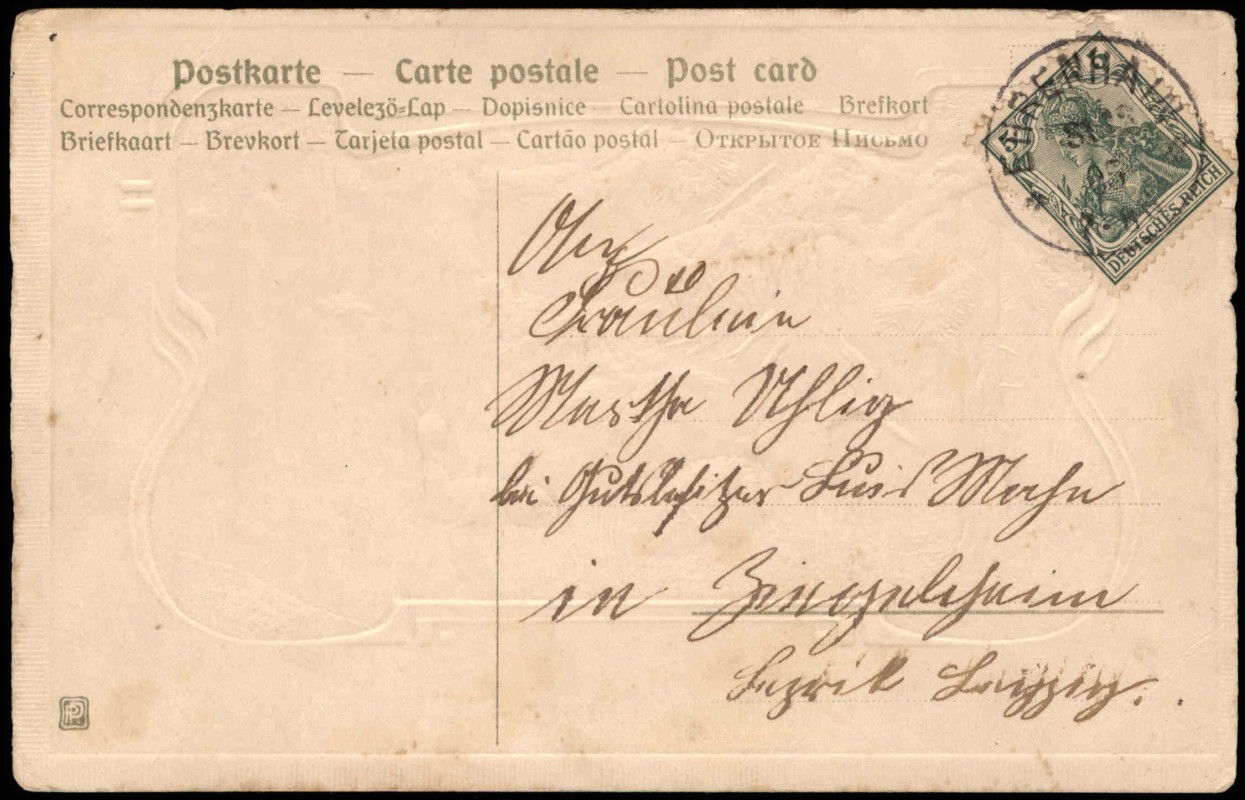 Postkarte — Carte postale — Post card
Correspondenzkarte — Levelező-Lap — Dopisnice — Cartolina postale — Brefkort
Briefkaart — Brevkort — Tarjeta postal — Cartão postal — Открытое Письмо
5
DEUTSCHES REICH
An
Fräulein
Martha Uhlig
bei Gutsbesitzer Luis Mahn
in
Bezrik Leipzig.
PP